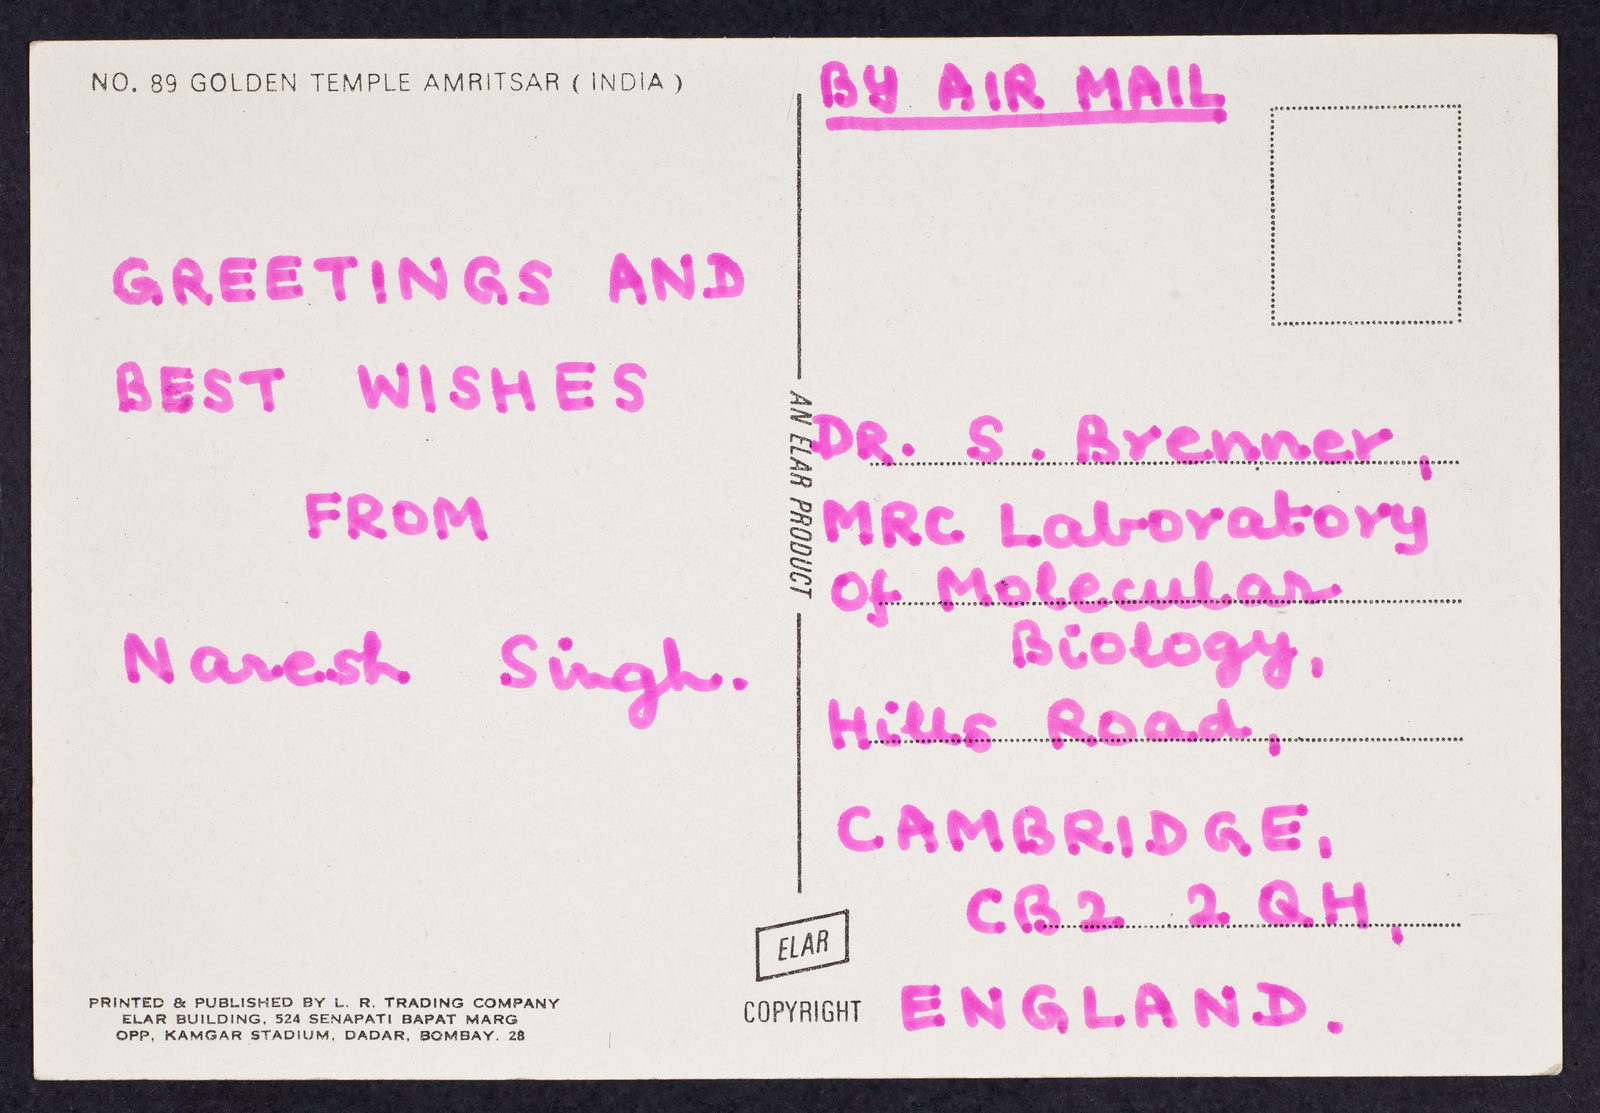 NO. 89 GOLDEN TEMPLE AMRITSAR ( INDIA )
GREETINGS AND
BEST WISHES
FROM
Naresh Singh.
PRINTED & PUBLISHED BY L. R. TRADING COMPANY
ELAR BUILDING, 524 SENAPATI BAPAT MARG
OPP, KAMGAR STADIUM, DADAR, BOMBAY. 28
AN ELAR PRODUCT
ELAR
COPYRIGHT
BY AIR MAIL
DR. S. Brenner,
MRC Laboratory
Of Molecular
Biology,
Hills Road,
CAMBRIDGE,
CB2 2QH,
ENGLAND.